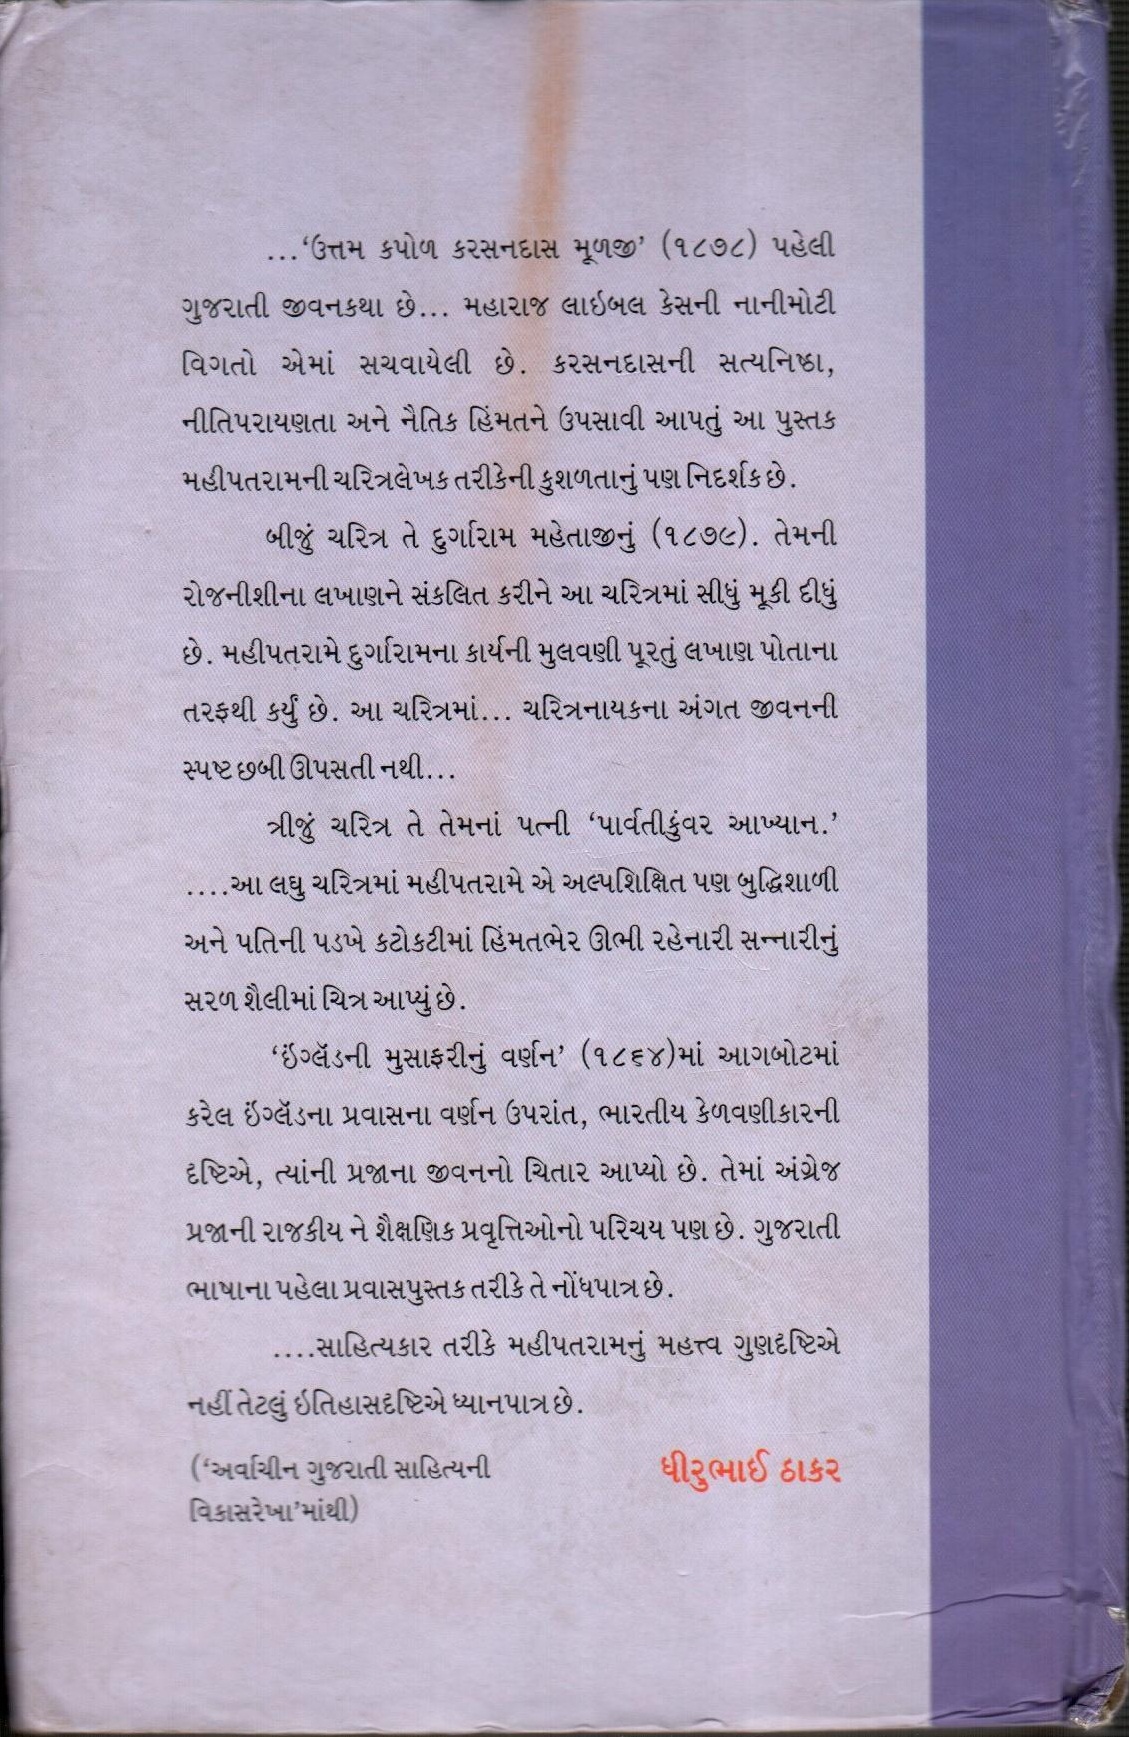 ...‘ઉત્તમ કપોળ કરસનદાસ મૂળજી’ (૧૮૭૮) પહેલી
ગુજરાતી જીવનકથા છે... મહારાજ લાઇબલ કેસની નાનીમોટી
વિગતો એમાં સચવાયેલી છે. કરસનદાસની સત્યનિષ્ઠા,
નીતિપરાયણતા અને નૈતિક હિંમતને ઉપસાવી આપતું આ પુસ્તક
મહીપતરામની ચરિત્રલેખક તરીકેની કુશળતાનું પણ નિદર્શક છે.
બીજું ચરિત્ર તે દુર્ગારામ મહેતાજીનું (૧૮૭૯). તેમની
રોજનીશીના લખાણને સંકલિત કરીને આ ચરિત્રમાં સીધું મૂકી દીધું
છે. મહીપતરામે દુર્ગારામના કાર્યની મુલવણી પૂરતું લખાણ પોતાના
તરફથી કર્યું છે. આ ચરિત્રમાં... ચરિત્રનાયકના અંગત જીવનની
સ્પષ્ટ છબી ઊપસતી નથી...
ત્રીજું ચરિત્ર તે તેમનાં પત્ની ‘પાર્વતીકુંવર આખ્યાન.’
....આ લઘુ ચરિત્રમાં મહીપતરામે એ અલ્પશિક્ષિત પણ બુદ્ધિશાળી
અને પતિની પડખે કટોકટીમાં હિંમતભેર ઊભી રહેનારી સન્નારીનું
સરળ શૈલીમાં ચિત્ર આપ્યું છે.
‘ઇંગ્લૅંડની મુસાફરીનું વર્ણન’ (૧૮૬૪)માં આગબોટમાં
કરેલ ઇંગ્લૅંડના પ્રવાસના વર્ણન ઉપરાંત, ભારતીય કેળવણીકારની
દૃષ્ટિએ, ત્યાંની પ્રજાના જીવનનો ચિતાર આપ્યો છે. તેમાં અંગ્રેજ
પ્રજાની રાજકીય ને શૈક્ષણિક પ્રવૃત્તિઓનો પરિચય પણ છે. ગુજરાતી
ભાષાના પહેલા પ્રવાસપુસ્તક તરીકે તે નોંધપાત્ર છે.
....સાહિત્યકાર તરીકે મહીપતરામનું મહત્ત્વ ગુણદૃષ્ટિએ
નહીં તેટલું ઇતિહાસદૃષ્ટિએ ધ્યાનપાત્ર છે.
(‘અર્વાચીન ગુજરાતી સાહિત્યની
વિકાસરેખા’માંથી)
ધીરુભાઈ ઠાકર